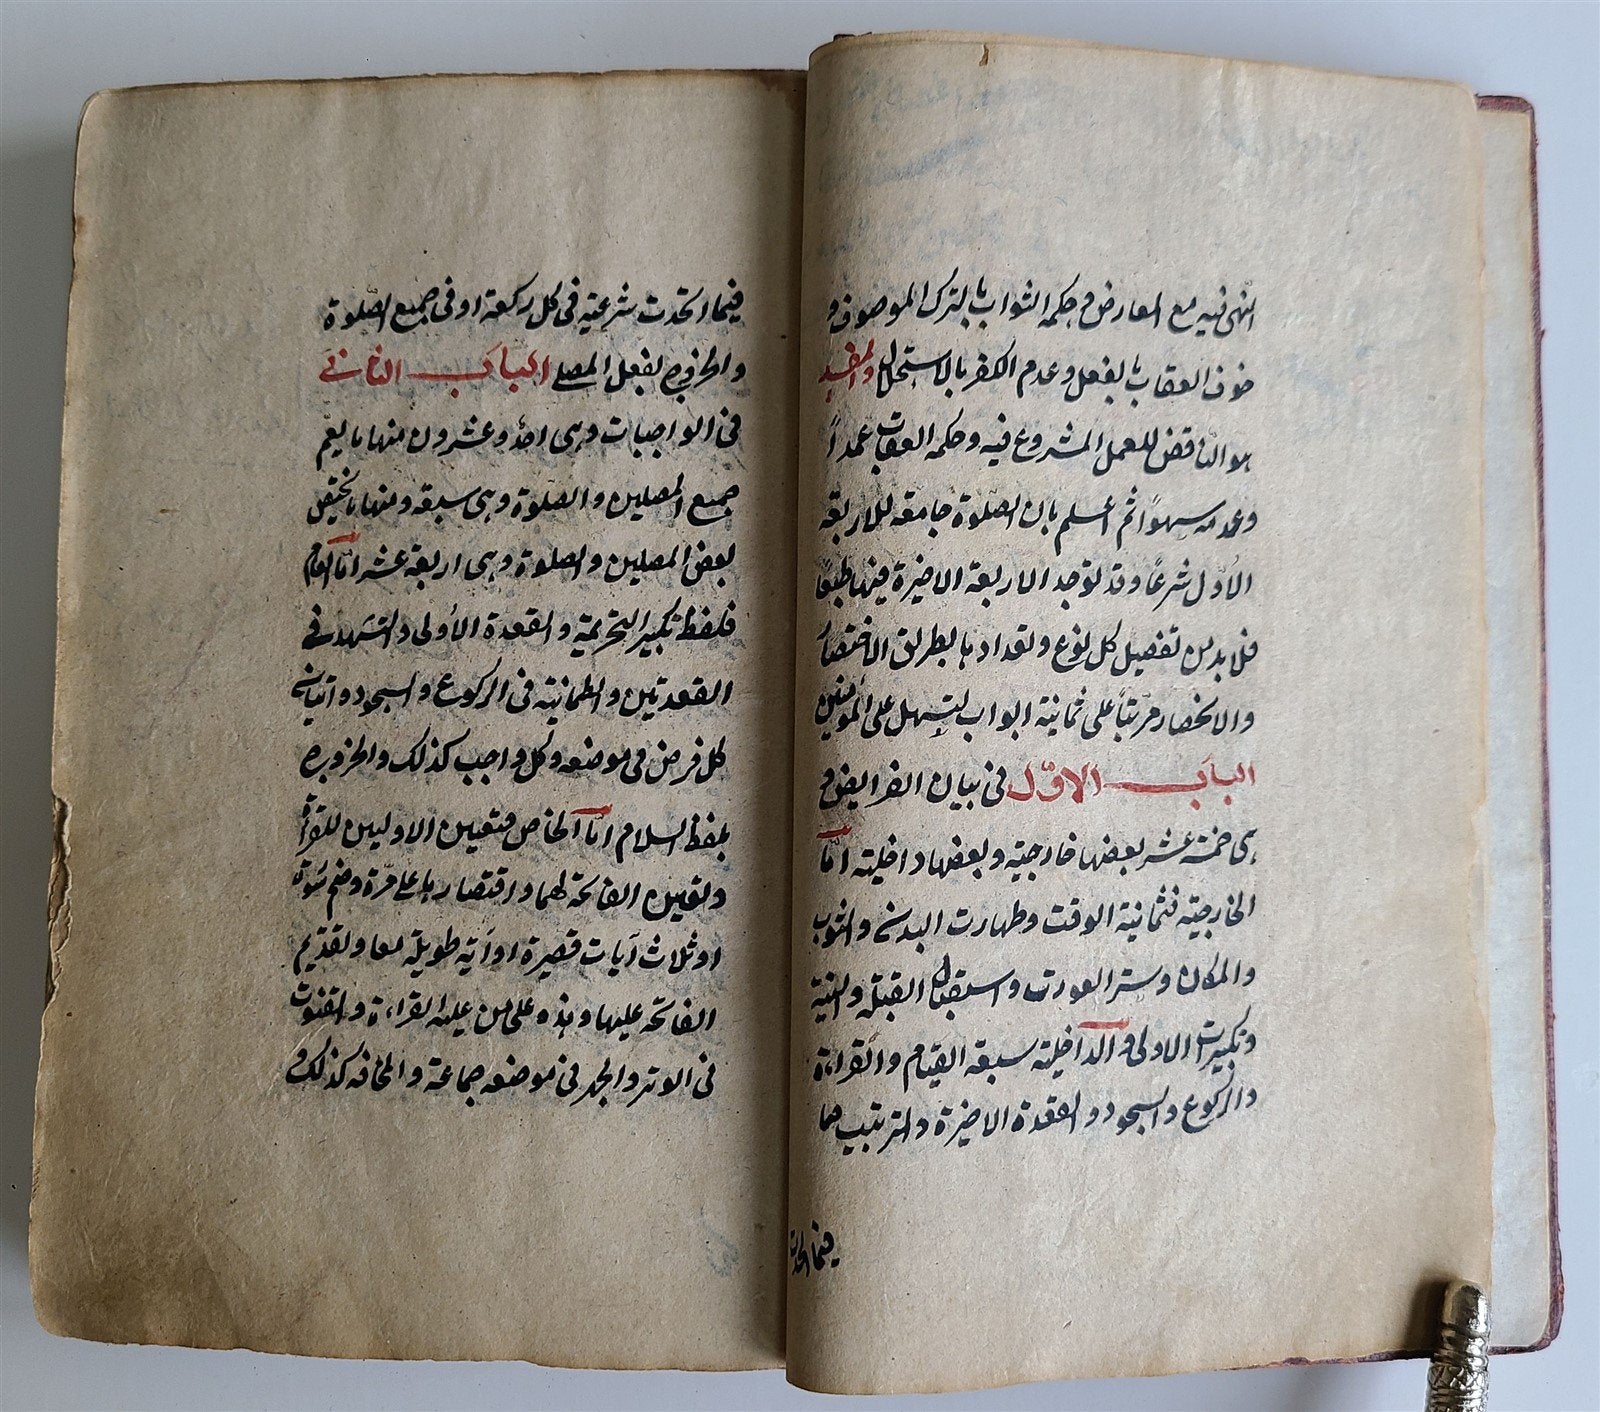 النهى فيه مع المعارض و حكمه الثواب بالترك الموصوف و
خوف العقاب بالفعل وعدم الكفر بالاستحلال والمفسد
هو الناقض للعمل المشروع فيه وحكمه العقاب عمداً
وعدمه سهواً ثم اعلم بان الصلوة جامعة للاربعة
الأوّل شرعًا وقد توجد الاربعة الاخيرة فيها طبعًا
فلا بد من تفصيل كل نوع وتعدادها بطريق الاختصار
والانحصار مرتباً على ثمانية ابواب ليسهل على المؤمنين
الباب الاوّل فى بيان الفرايض و
هى خمسة عشر بعضها خارجية وبعضها داخلية امّا
الخارجية فثمانية الوقت وطهارت البدن والثوب
والمكان وستر العورت واستقبال القبلة والنية
وتكبيرت الاولى والداخلية سبعة القيام والقراءة
والركوع والسجود والقعدة الاخيرة والترتيب فيما
فيما اتحدت
فيما اتحدت شرعية فى كل ركعة او فى جميع الصّلوة
والخروج بفعل المصلى الباب الثانى
فى الواجبات وهى احدٌ وعشرون منها ما يعمّ
جميع المصلين والصّلوة وهى سبعة ومنها ما يختصّ
بعض المصلين والصلوة وهى اربعة عشر امّا العام
فلفظ تكبير التحريمة والقعدة الأولى والتشهد فى
القعدتين والطمانية فى الركوع والسجود واتيان
كل فرض فى موضعه وكل واجب كذلك والخروج
بلفظ السلام امّا الخاص فتعيين الاوليين للقراءة
وتعيين الفاتحة لهما واقتصارها على مرّة وضم سورة
او ثلاث آيات قصيرة او آية طويلة معا وتقديم
الفاتحة عليها وهذه على من عليه القراءة والقنوت
فى الوتر والجهر فى موضعه جماعة والمخافة كذلك و